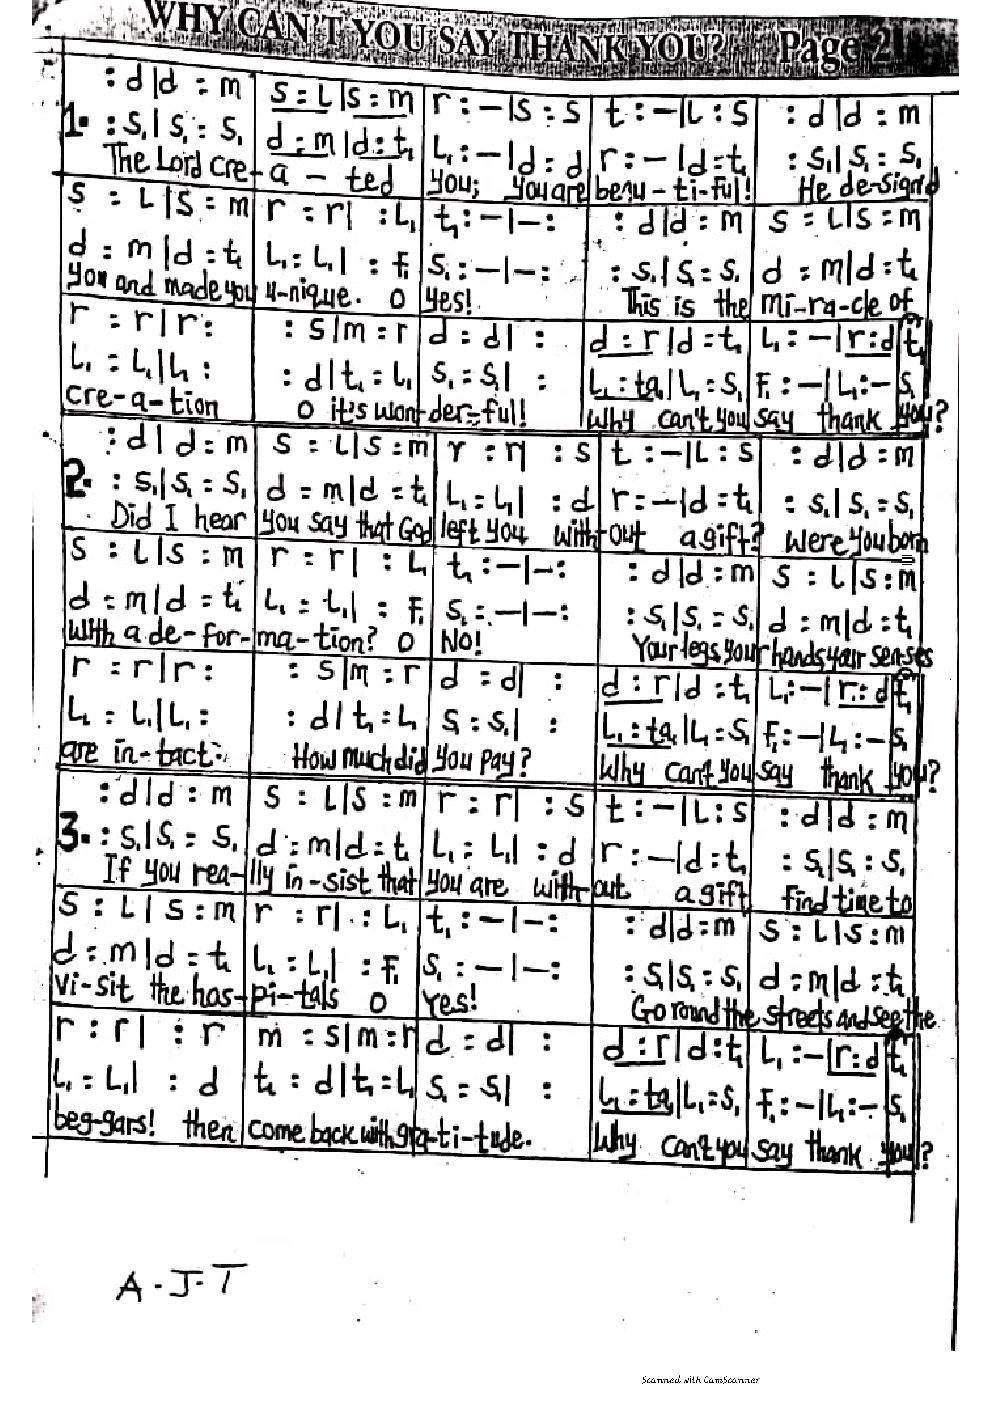 WHY CAN'T YOU SAY THANK YOU? Page 2
: d | d : m | s : L | s : m | r : – | s : s | t : – | L : s | : d | d : m
1. : s₁ | s₁ : s₁ | d : m | d : t₁ | L₁ : – | d : d | r : – | d : t₁ | : s₁ | s₁ : s₁
The Lord cre-a-ted you; you are beau-ti-ful! He de-signd
s : L | s : m | r : r | : L₁ | t₁ : – | – : | : d | d : m | s : L | s : m
d : m | d : t₁ | L₁ : L₁ | : f₁ | s₁ : – | – : | : s₁ | s₁ : s₁ | d : m | d : t₁
you and made you u-nique. O yes! This is the mi-ra-cle of
r : r | r : | : s | m : r | d : d | : | d : r | d : t₁ | L₁ : – | r : d | t₁
L₁ : L₁ | L₁ : | : d | t₁ : L₁ | s₁ : s₁ | : | L₁ : ta₁ | L₁ : s₁ | f₁ : – | L₁ : – | s₁
cre-a-tion O it's won-der-ful! Why can't you say thank you?
: d | d : m | s : L | s : m | r : r | : s | t : – | L : s | : d | d : m
2. : s₁ | s₁ : s₁ | d : m | d : t₁ | L₁ : L₁ | : d | r : – | d : t₁ | : s₁ | s₁ : s₁
Did I hear you say that God left you with-out a gift? Were you born
s : L | s : m | r : r | : L₁ | t₁ : – | – : | : d | d : m | s : L | s : m
d : m | d : t₁ | L₁ : L₁ | : f₁ | s₁ : – | – : | : s₁ | s₁ : s₁ | d : m | d : t₁
with a de-for-ma-tion? O No! Your legs, your hands, your senses
r : r | r : | : s | m : r | d : d | : | d : r | d : t₁ | L₁ : – | r : d | t₁
L₁ : L₁ | L₁ : | : d | t₁ : L₁ | s₁ : s₁ | : | L₁ : ta₁ | L₁ : s₁ | f₁ : – | L₁ : – | s₁
are in-tact. How much did you pay? Why can't you say thank you?
: d | d : m | s : L | s : m | r : r | : s | t : – | L : s | : d | d : m
3. : s₁ | s₁ : s₁ | d : m | d : t₁ | L₁ : L₁ | : d | r : – | d : t₁ | : s₁ | s₁ : s₁
If you rea-lly in-sist that you are with-out a gift find time to
s : L | s : m | r : r | : L₁ | t₁ : – | – : | : d | d : m | s : L | s : m
d : m | d : t₁ | L₁ : L₁ | : f₁ | s₁ : – | – : | : s₁ | s₁ : s₁ | d : m | d : t₁
vi-sit the hos-pi-tals O Yes! Go round the streets and see the
r : r | : r | m : s | m : r | d : d | : | d : r | d : t₁ | L₁ : – | r : d | t₁
L₁ : L₁ | : d | t₁ : d | t₁ : L₁ | s₁ : s₁ | : | L₁ : ta₁ | L₁ : s₁ | f₁ : – | L₁ : – | s₁
beg-gars! then come back with gra-ti-tude. Why can't you say thank you?
A-J-T
Scanned with CamScanner